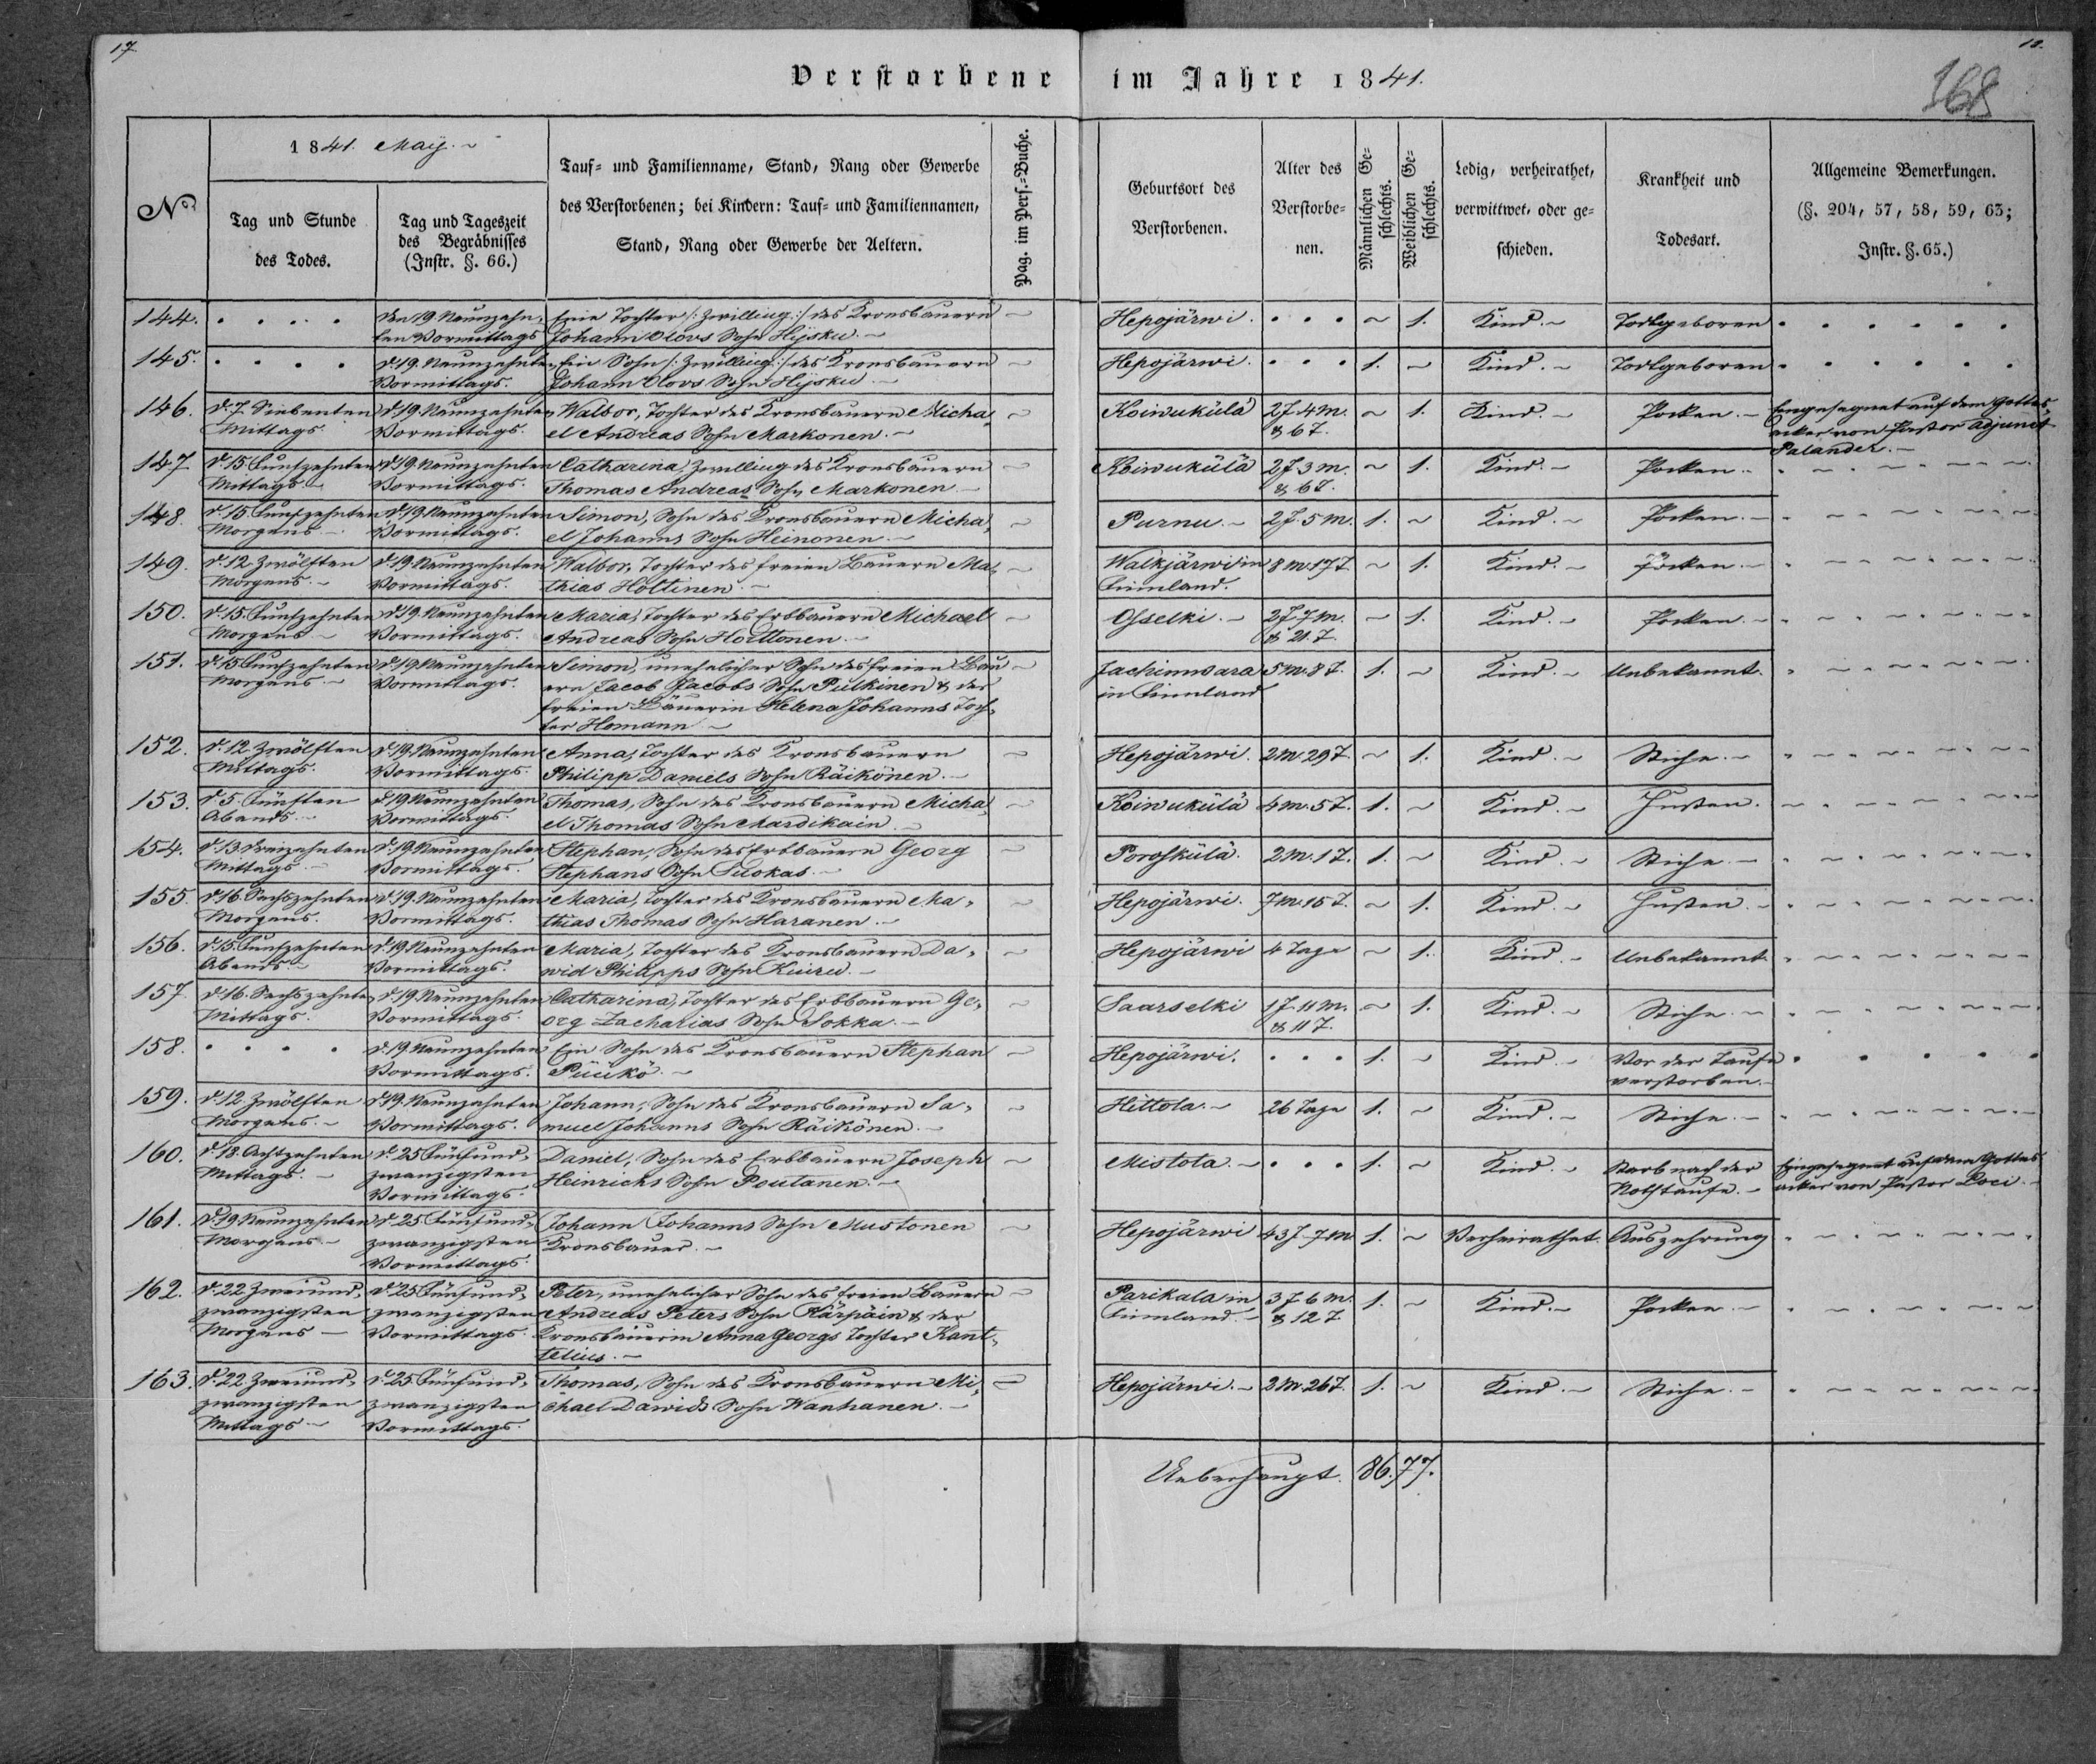 17.
18.
168
Verstorbene im Jahre 1841.
No
1841. Maij.
Tag und Stunde
des Todes.
Tag und Tageszeit
des Begräbnisses
(Instr. §. 66.)
Tauf- und Familienname, Stand, Rang oder Gewerbe
des Verstorbenen; bei Kindern: Tauf- und Familiennamen,
Stand, Rang oder Gewerbe der Aeltern.
Pag. im Pers.-Buche.
Geburtsort des
Verstorbenen.
Alter des
Verstorbe-
nen.
Männlichen Ge-
schlechts.
Weiblichen Ge-
schlechts.
Ledig, verheirathet,
verwittwet, oder ge-
schieden.
Krankheit und
Todesart.
Allgemeine Bemerkungen.
(§. 204, 57, 58, 59, 63;
Instr. §. 65.)
144. den 19. Neunzehn- Eine Tochter /: Zwilling :/ des Kronsbauern Hepojärwi. 1. Kind. Todtgeboren
ten Vormittags Johann Olovs Sohn Hijsku.
145. d. 19. Neunzehnten Ein Sohn /: Zwilling :/ des Kronsbauern Hepojärwi. 1. Kind. Todtgeboren
Vormittags. Johann Olovs Sohn Hijsku
146. d. 7. Siebenten d. 19. Neunzehnten Walbor, Tochter des Kronsbauern Micha- Koiwukülä 2 J. 4 M. 1. Kind. Pocken. Eingesegnet auf dem Gottes-
Mittags. Vormittags. el Andreas Sohn Markonen. & 6 T. acker von Pastor Adjunct
Palander.
147 d. 15. Funfzehnten d. 19. Neunzehnten Catharina, Zwilling des Kronsbauern Koiwukülä 2 J. 3 M. 1. Kind. Pocken.
Mittags. Vormittags. Thomas Andreas Sohn Markonen & 6 T.
148. d. 15. Funfzehnten d. 19. Neunzehnten Simon, Sohn des Kronsbauern Micha- Purnu. 2 J. 5 M. 1. Kind. Pocken.
Morgens Vormittags. el Johanns Sohn Heinonen
149. d. 12. Zwölften d. 19. Neunzehnten Walbor, Tochter des freien Bauern Ma- Walkjärwi in 8 M. 17 T. 1. Kind. Pocken.
Morgens. Vormittags. thias Holtinen. Finnland.
150. d. 15. Funfzehnten d. 19. Neunzehnten Maria, Tochter des Erbbauern Michael Osselki. 2 J. 7 M. 1. Kind. Pocken.
Morgens Vormittags. Andreas Sohn Horttonen. & 21 T.
151. d. 15. Funfzehnten d. 19. Neunzehnten Simon, unehelicher Sohn des freien Bau- Jachimwara 5 M. 8 T. 1. Kind. Unbekannt.
Morgens. Vormittags. ern Jacob Jacobs Sohn Pulkinen & der in Finnland
freien Bäuerin Helena Johanns Toch-
ter Homann
152. d. 12. Zwölften d. 19. Neunzehnten Anna, Tochter des Kronsbauern Hepojärwi. 2 M. 29 T. 1. Kind. Stiche.
Mittags. Vormittags. Philipp Daniels Sohn Räikönen.
153. d. 5. Fünften d. 19. Neunzehnten Thomas, Sohn des Kronsbauern Micha- Koiwukülä 4 M. 5 T. 1. Kind. Husten.
Abends. Vormittags. el Thomas Sohn Mardikain.
154. d. 13. Dreizehnten d. 19. Neunzehnten Stephan, Sohn des Erbbauern Georg Poroskülä. 2 M. 1 T. 1. Kind. Stiche.
Mittags. Vormittags. Stephans Sohn Luokas.
155. d. 16. Sechszehnten d. 19. Neunzehnten Maria, Tochter des Kronsbauern Ma- Hepojärwi. 7 M. 15 T. 1. Kind. Husten.
Morgens. Vormittags. thias Thomas Sohn Haranen.
156. d. 15. Funfzehnten d. 19. Neunzehnten Maria, Tochter des Kronsbauern Da- Hepojärwi 4 Tage 1. Kind. Unbekannt.
Abends. Vormittags. wid Philipps Sohn Kiuru.
157 d. 16. Sechszehnten d. 19. Neunzehnten Catharina, Tochter des Erbbauern Ge- Saarselki 1 J. 11 M. 1. Kind. Stiche.
Mittags. Vormittags. org Zacharias Sohn Sokka. & 11 T.
158. d. 19. Neunzehnten Ein Sohn des Kronsbauern Stephan Hepojärwi. 1. Kind. Vor der Taufe
Vormittags. Püükö. verstorben.
159. d. 12. Zwölften d. 19. Neunzehnten Johann, Sohn des Kronsbauern Sa- Hittola. 26 Tage 1. Kind. Stiche.
Morgens. Vormittags. muel Johanns Sohn Räikönen.
160. d. 18. Achtzehnten d. 25. Fünfund- Daniel, Sohn des Erbbauern Joseph Mistola. 1. Kind. Starb nach der Eingesegnet auf dem Gottes-
Mittags. zwanzigsten Heinrichs Sohn Poutanen. Nothtaufe. acker von Pastor Loci.
Vormittags.
161. d. 19. Neunzehnten d. 25. Fünfund- Johann Johanns Sohn Mustonen Hepojärwi 43 J. 7 M. 1. Verheirathet. Auszehrung
Morgens. zwanzigsten Kronsbauer.
Vormittags.
162. d. 22. Zweiund- d. 25. Fünfund- Peter, unehelicher Sohn des freien Bauern Parikala in 3 J. 6 M. 1. Kind. Pocken.
zwanzigsten zwanzigsten Andreas Peters Sohn Kärpäin & der Finnland. & 12 T.
Morgens Vormittags. Kronsbäuerin Anna Georgs Tochter Kant-
telius.
163. d. 22. Zweiund- d. 25. Fünfund- Thomas, Sohn des Kronsbauern Mi- Hepojärwi. 2 M. 26 T. 1. Kind. Stiche.
zwanzigsten zwanzigsten chael Dawids Sohn Wanhanen.
Mittags Vormittags.
Ueberhaupt. 86. 77.